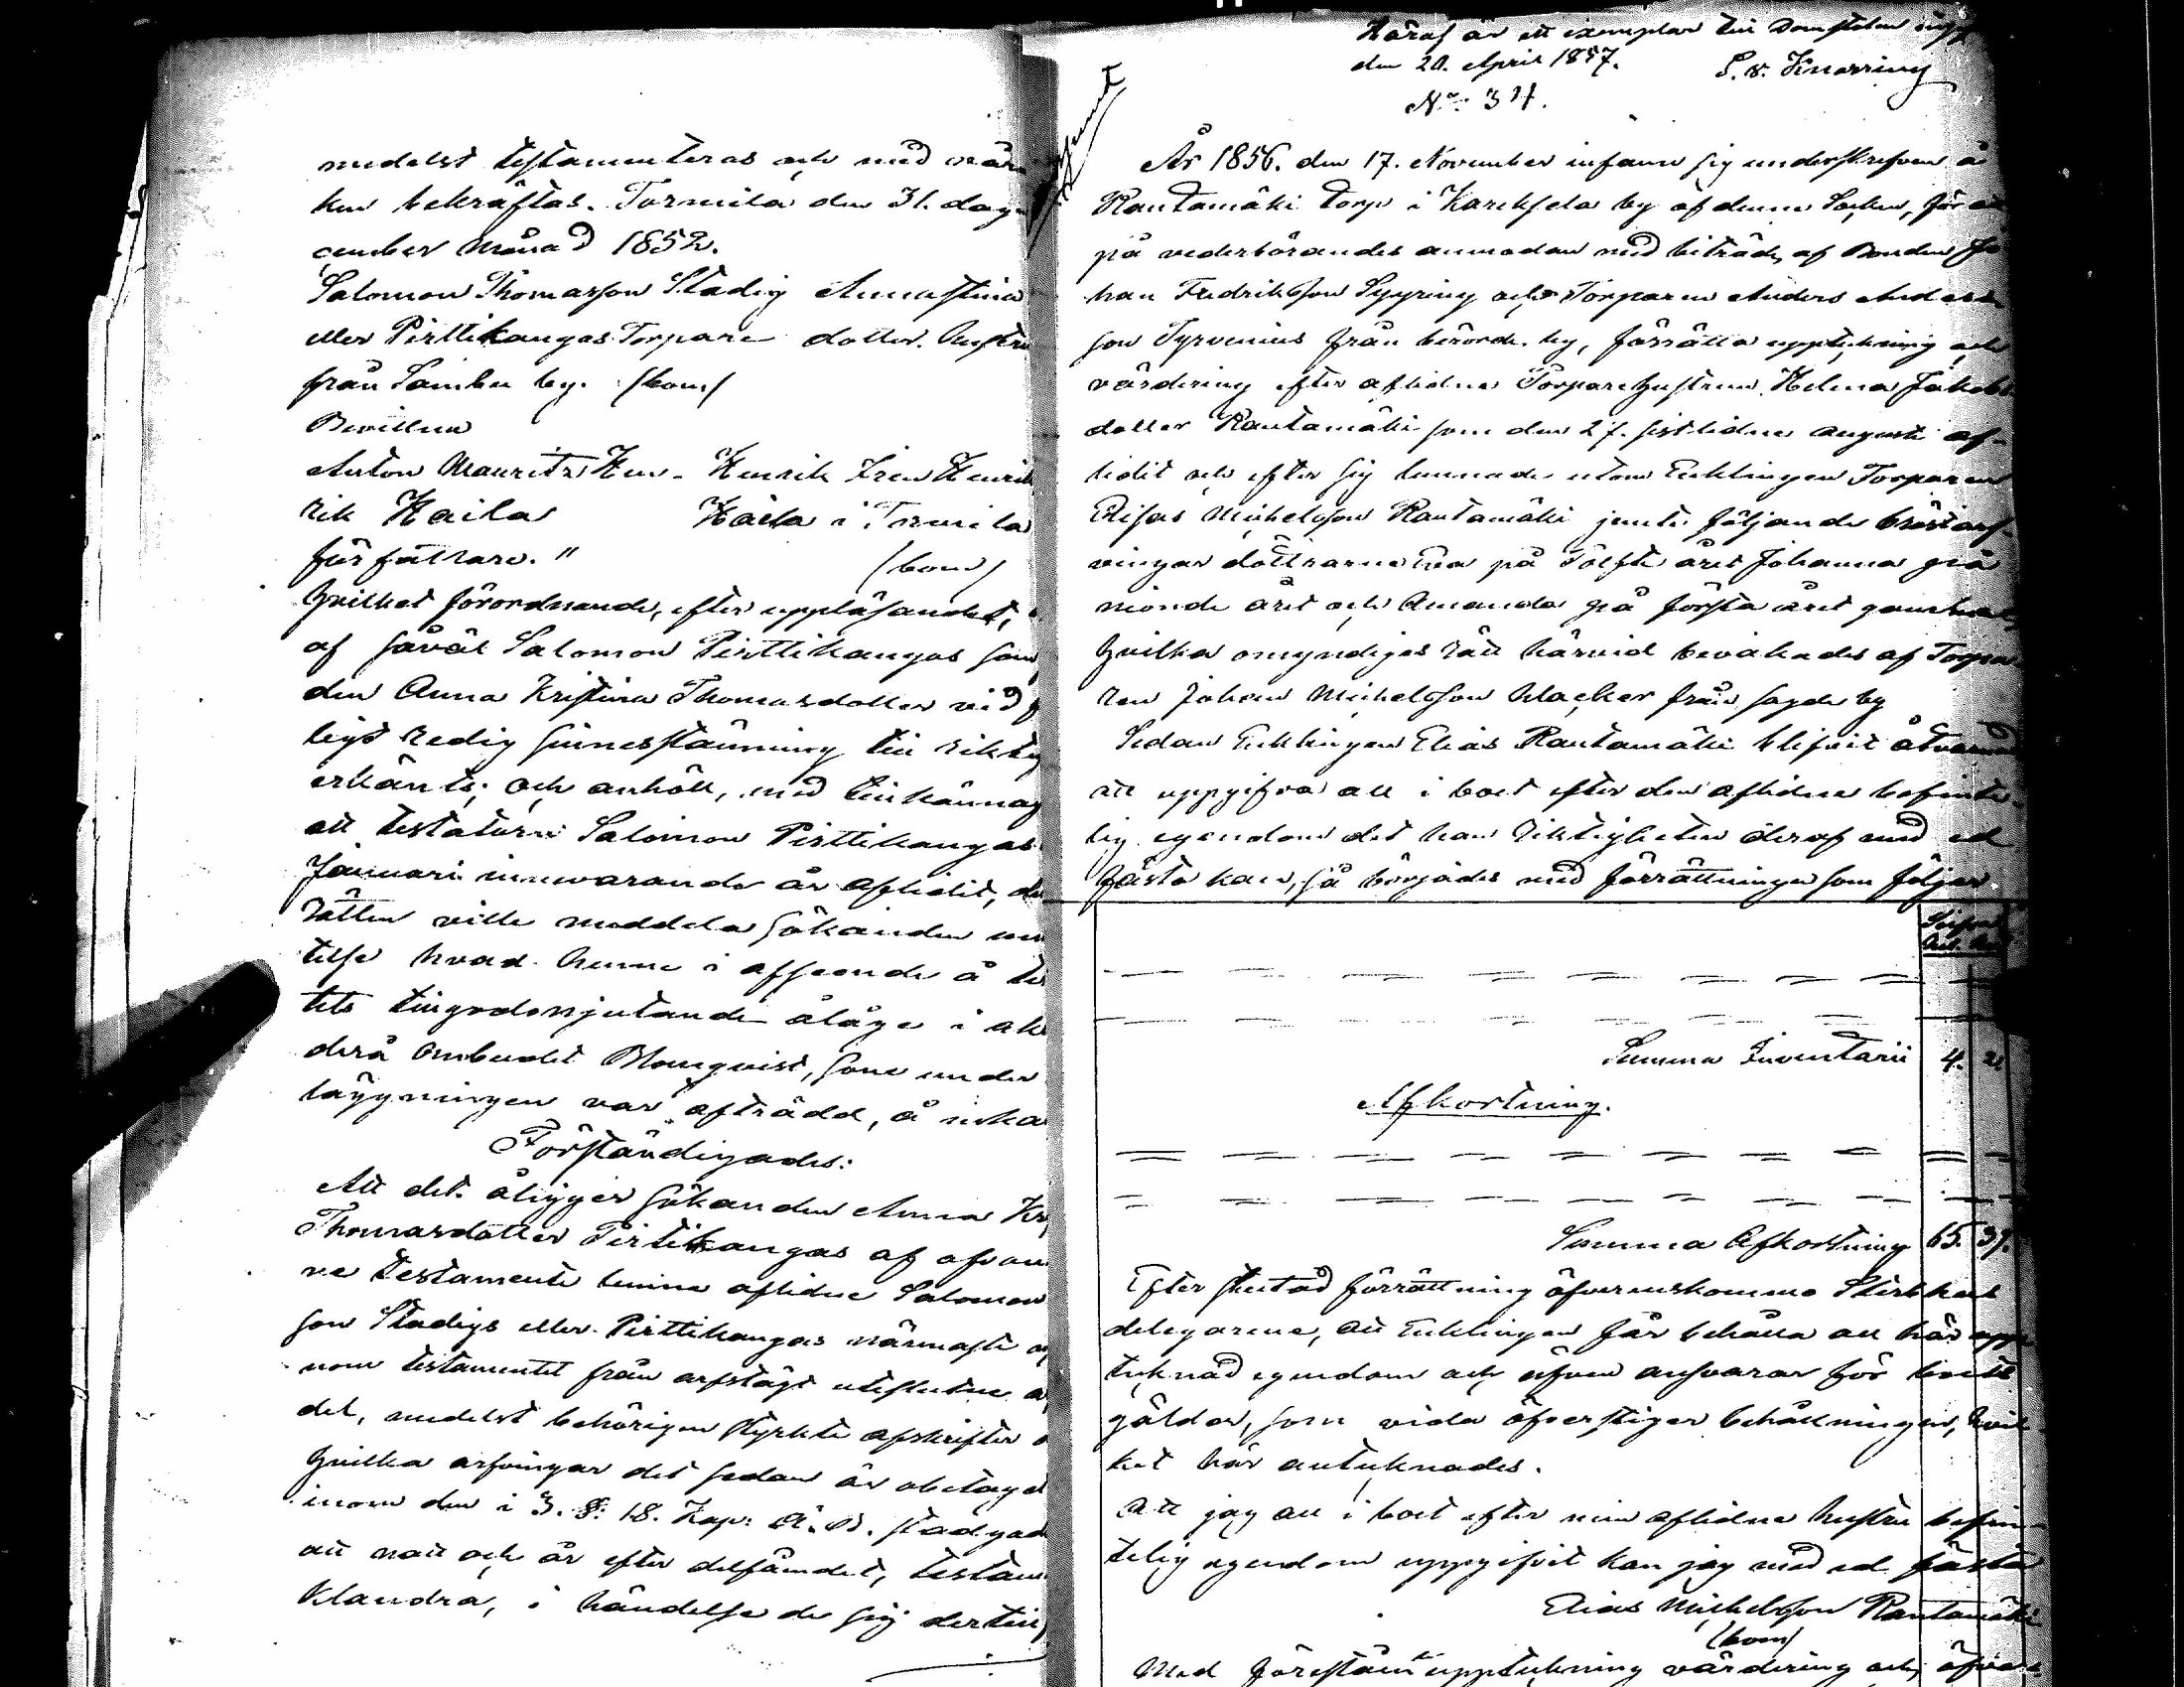 medelst testamenteras och med
ken bekräftas. Tormila den 31. dag
cember Månad 1852.
Salomon Thomasson Stadig Annastina
eller Pirttikangas Torpare dotter. Hustru
från Sambu by. (bom)
Bevittna
Anton Mauritz Hen- Henrik Henrik
rik Haila Haila i Tormila
författare." (bom)
Hvilket förordnande, efter uppläsandet,
af såväl Salomon Pirttikangas som
den Anna Kristina Thomasdotter vid
ligt redig sinnesstämning till riktig
erkänts; och anhöll, med tillkännag
att testatorn Salomon Pirttikangas
Januari innevarande år aflidit, det
Rätten ville meddela sökanden un
telse hvad henne i afseende å tes
tets tillgodonjutande ålåge i akt
derå Ombudet Blomqvist, som under
läggningen var afträdd, å nska
Förständigades:
Att det åligger sökanden Anna Kr
Thomasdotter Pirttikangas af ofvan
ne testamente lemna aflidne Salomon
son Stadigs eller Pirttikangas närmaste
nom testamentet från arfslägt uteslutne
del, medelst behörigen styrkte afskrifter
hvilka arfvingar det sedan är obetaget
inom den i 3. §. 18. Kap. Ä. B. stadgad
att natt och år efter delfåendet, testam
klandra, i händelse de sig dertill
Häraf är ett exemplar till Domstolen
den 20. April 1857. S. v. Knorring
No 34.
År 1856. den 17. November infann sig underskrefven å
Rautamäki Torp i Kareksela by af denna Socken, för att
på vederbörandes anmodan med biträde af Bonden Jo
han Fredriksson Syyring och Torparen Anders Anders
son Tyrvenius från berörde by, förrätta uppteckning och
värdering efter aflidne Torparehustrun Helena Jakobs
dotter Rautamäki som den 27. sistlidne augusti af-
lidit och efter sig lemnade utom Encklingen Torparen
Elias Michelsson Rautamäki jemte följande bröstarf-
vingar döttrarne Eva på Tolfte året Johanna på
nionde året och Amanda på första året gamla
Hvilka omyndigas rätt härvid bevakades af Torpa
ren Johan Michelsson Wacker från sagde by
Sedan Encklingen Elias Rautamäki blifvit åtvarnad
att uppgifva all i boet efter den aflidna befint-
lig egendom det han riktigheten deraf med ed
fästa kan, så börjades med förrättningen som följer.
Summa Inventarii 4.
Afkortning.
Summa Afkortning 65. 39.
Efter slutad förrättning öfverenskommo Sterbhus
delegarena, att Encklingen får behålla all här upp
teknad egendom och äfven ansvarar för boets
gälder, som vida öfverstiger behållningen, hvil-
ket här antecknades.
Att jag all i boet efter min aflidna hustru befin-
telig egendom uppgifvit kan jag med ed fästa
Elias Michelsson Rautamäki
(bom)
Med förestående uppteckning värdering och